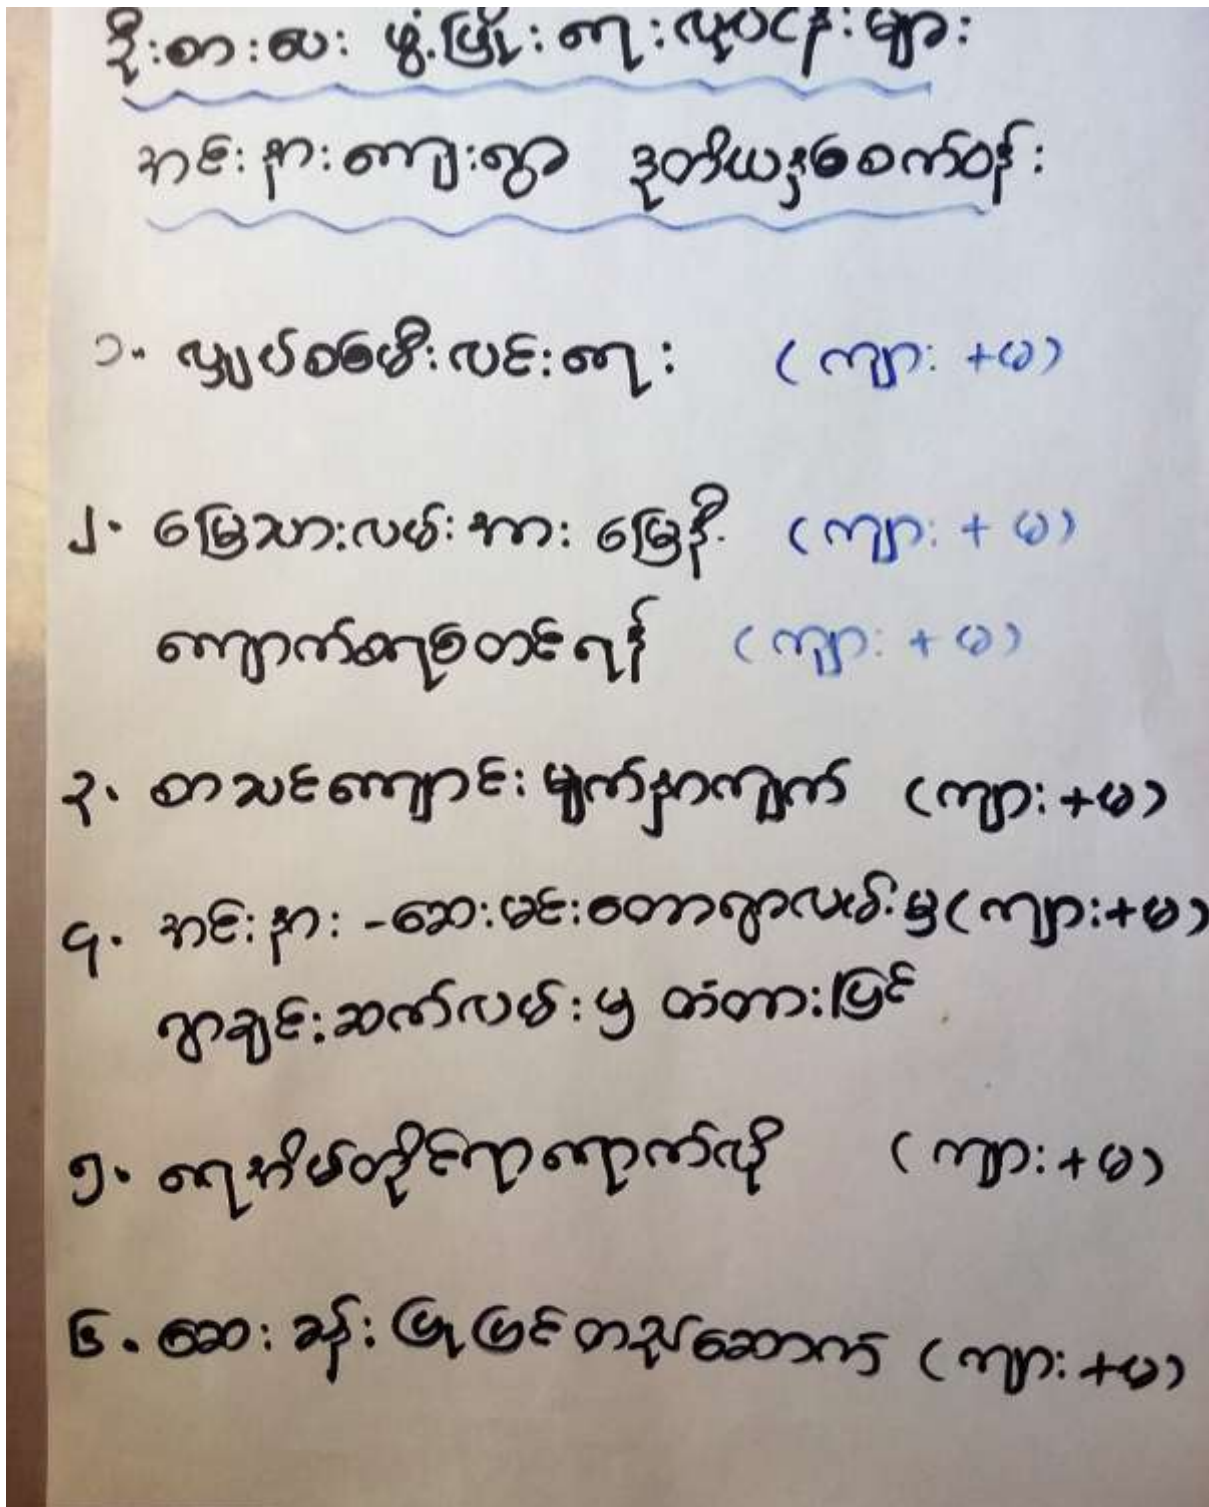 ဦးစားပေး ဖွံ့ဖြိုးရေးလုပ်ငန်းများ
အင်းနားကျေးရွာ ဒုတိယနှစ်စက်ဝန်း
၁။ လျှပ်စစ်မီးလင်းရေး (ကျား +မ)
၂. မြေသားလမ်းအား မြေနီ (ကျား + မ)
ကျောက်စရစ်တင်ရန် (ကျား + မ)
၃. စာသင်ကျောင်းမျက်နှာကျက် (ကျား+မ)
၄. အင်းနား -ဆေးမင်းတောရွာလမ်းမှ (ကျား+မ)
ရွာချင်းဆက်လမ်းမှ တံတားပြင်
၅. ရေအိမ်တိုင်ရာရောက်လို (ကျား+မ)
၆. ဆေးခန်းပြုပြင်တည်ဆောက် (ကျား+မ)